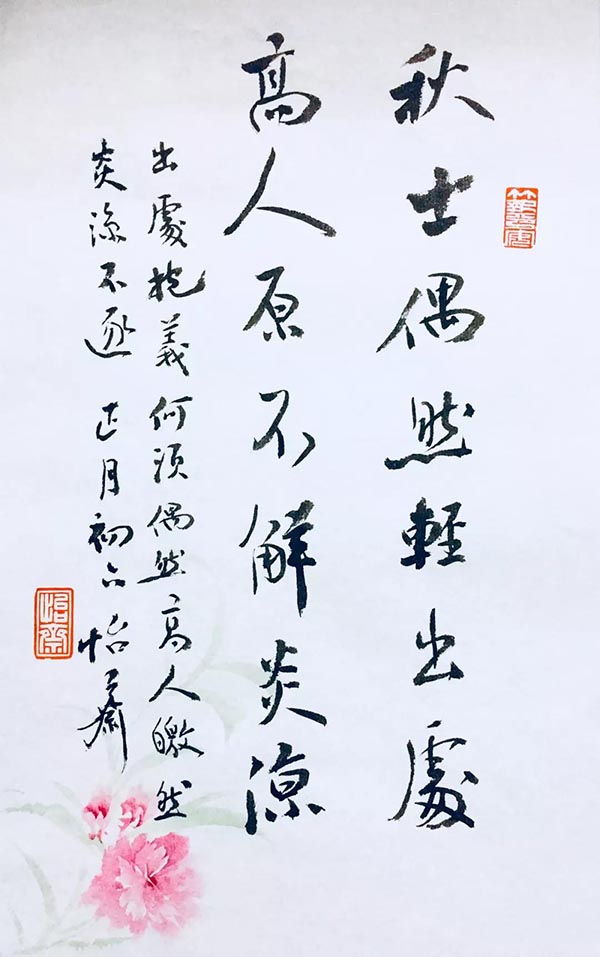 秋士偶然輕出處
高人原不解炎涼
出處抱義何須偶然高人皦然
炎涼不逐 正月初六怡齋
怡齋